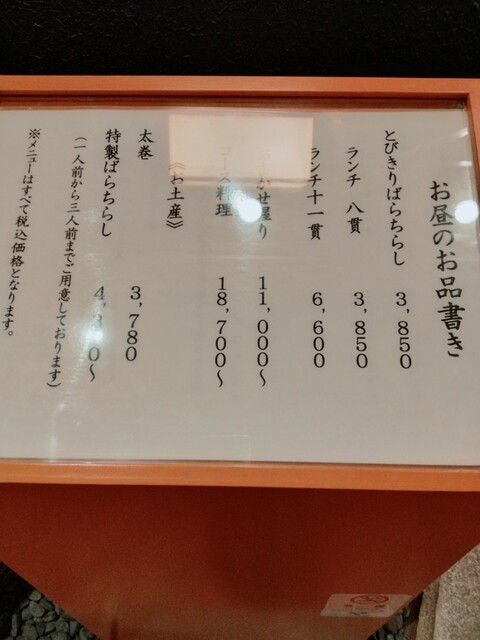 お昼のお品書き
とびきりばらちらし 3,850
ランチ 八貫 3,850
ランチ十一貫 6,600
かせ握り 11,000〜
料理 18,700〜
《お土産》
太巻 3,780
特製ばらちらし
(一人前から三人前までご用意しております)
※メニューはすべて税込価格となります。